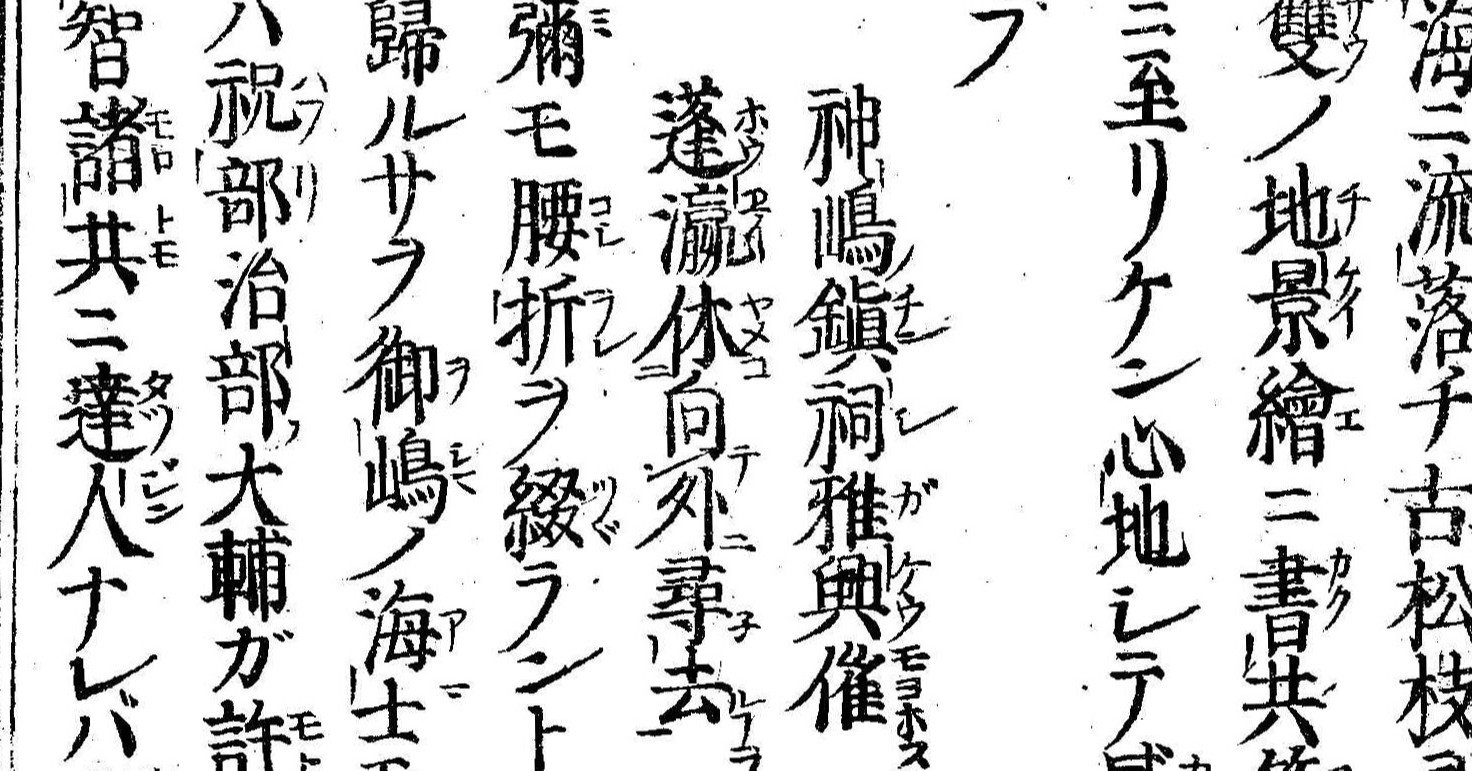 海ニ流落チ古松枝
雙ノ地景繪ニ書共
ニ至リケン心地レテ
ブ
神嶋ノ鎭祠雅興催
蓬瀛休向外尋去
彌モ腰折ヲ綴ラント
歸ルサヲ御嶋ノ海士
ハ祝部治部大輔ガ許
智諸共ニ達人ナレバ